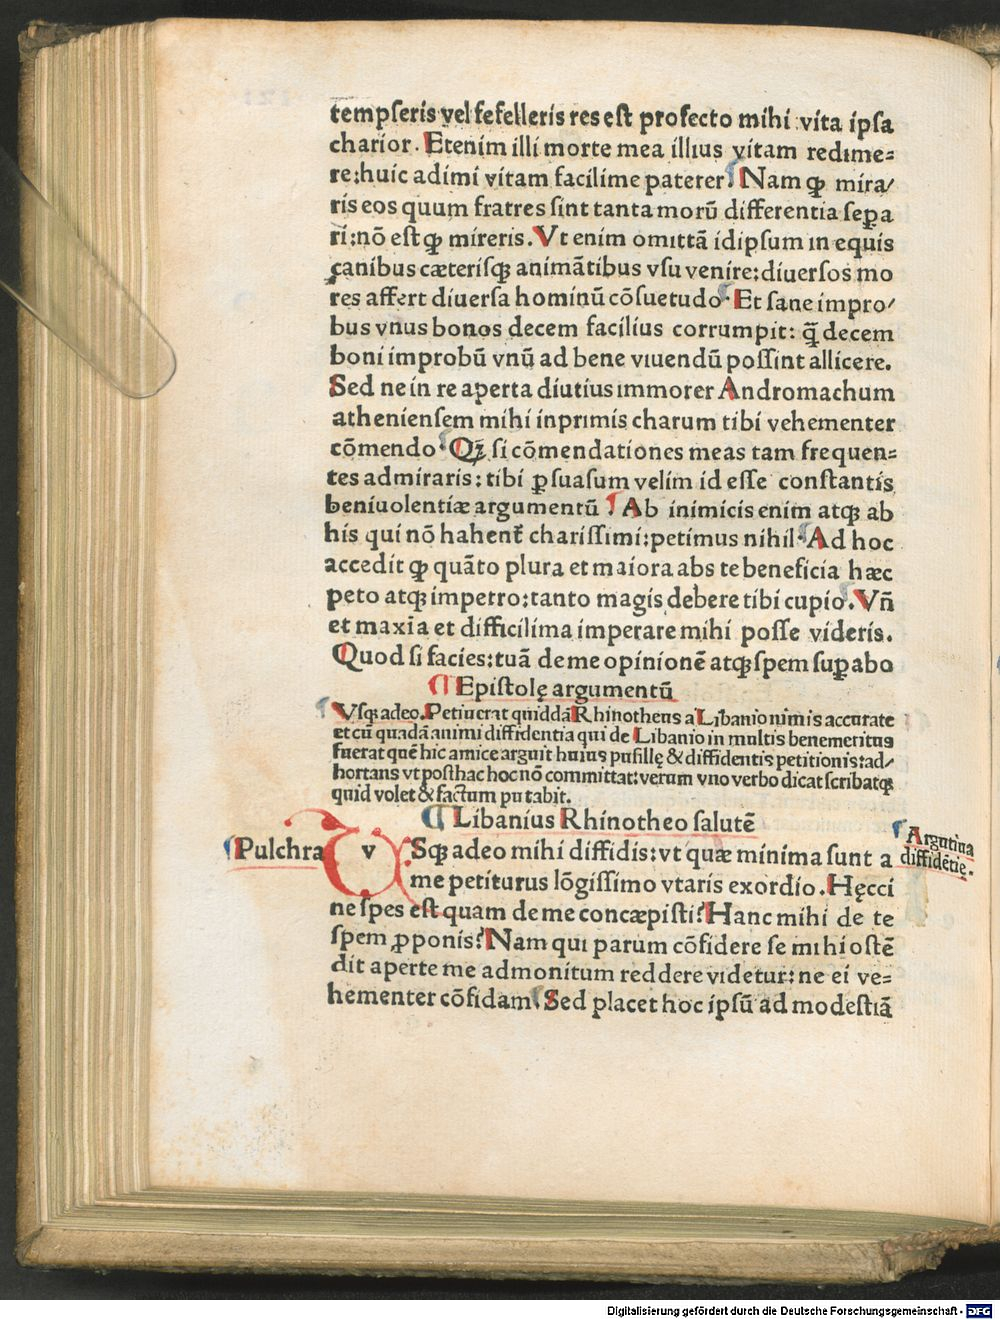 tempseris vel fefelleris res est profecto mihi vita ipsa
charior. Etenim illi morte mea illius vitam redime=
re:huic adimi vitam facilime paterer. Nam ꝙ mira/
ris eos quum fratres sint tanta morū differentia sepa
ri:nō est ꝙ mireris. Vt enim omittā idipsum in equis
canibus cæterisqꝫ animātibus vsu venire:diuersos mo
res affert diuersa hominū cōsuetudo. Et sane impro/
bus vnus bonos decem facilius corrumpit: q̄ decem
boni improbū vnū ad bene viuendū possint allicere.
Sed ne in re aperta diutius immorer Andromachum
atheniensem mihi inprimis charum tibi vehementer
cōmendo. Qꝫ si cōmendationes meas tam frequen=
tes admiraris: tibi ꝑsuasum velim id esse constantis
beniuolentiæ argumentū ¶ Ab inimicis enim atqꝫ ab
his qui nō hahent̄ charissimi:petimus nihil. Ad hoc
accedit ꝙ quāto plura et maiora abs te beneficia hæc
peto atqꝫ impetro:tanto magis debere tibi cupio. Vn̄
et maxīa et difficilima imperare mihi posse videris.
Quod si facies:tuā de me opinionē atqꝫ spem suꝑabo
¶ Epistolę argumentū
Vsqꝫ adeo. Petiuerat quiddā Rhinotheus a Libanio nimis accurate
et cū quadā animi diffidentia qui de Libanio in multis benemeritus
fuerat quē hic amice arguit huius pusillę & diffidentis petitionis:ad/
hortans vt posthac hoc nō committat:verum vno verbo dicat scribatqꝫ
quid volet & factum putabit.
¶ Libanius Rhinotheo salutē
Pulchra
v Sqꝫ adeo mihi diffidis:vt quæ minima sunt a
Argutina
diffidētie.
me petiturus lōgissimo vtaris exordio. Hęcci
ne spes est quam de me concæpisti? Hanc mihi de te
spem ꝓponis? Nam qui parum cōfidere se mihi ostē
dit aperte me admonitum reddere videtur: ne ei ve=
hementer cōfidam. Sed placet hoc ipsū ad modestiā
Digitalisierung gefördert durch die Deutsche Forschungsgemeinschaft - DFG